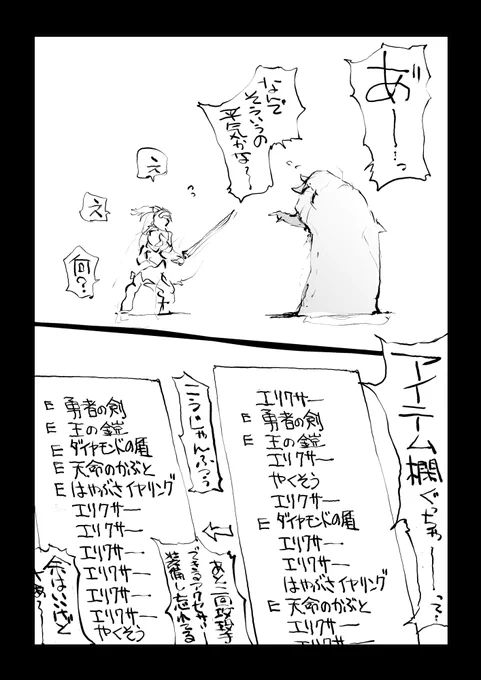 あ゛ー…っ
なんで
そういうの
平気かな〜
え
え
何?
アイテム欄ぐっちゃーーって…
エリクサー
E 勇者の剣
E 王の鎧
エリクサー
やくそう
エリクサー
E ダイヤモンドの盾
エリクサー
エリクサー
はやぶさイヤリング
E 天命のかぶと
エリクサー
エリクサー
こうじゃんふつう
あと二回攻撃
できるアクセサリー
装備し忘れてる
E 勇者の剣
E 王の鎧
E ダイヤモンドの盾
E 天命のかぶと
E はやぶさイヤリング
エリクサー
エリクサー
エリクサー
エリクサー
エリクサー
エリクサー
やくそう
余はいいけど